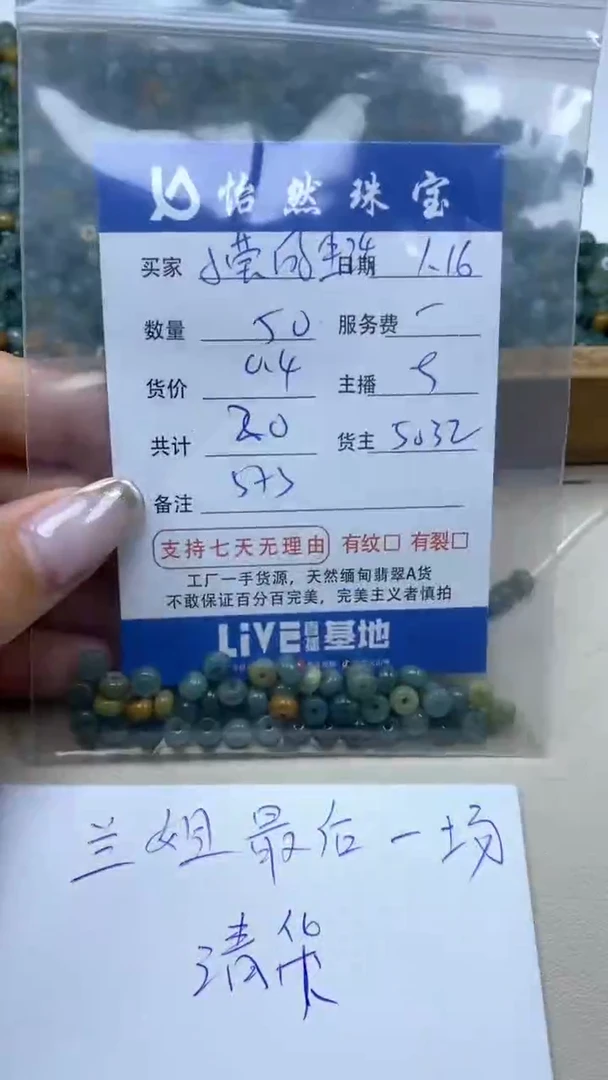 怡然珠宝
买家 日期 1.16
数量 50 服务费 一
货价 0.4 主播
共计 20 货主 5032
备注 573
支持七天无理由 有纹□ 有裂□
工厂一手货源，天然缅甸翡翠A货
不敢保证百分百完美，完美主义者慎拍
LiVE直播基地
兰姐最后一场
清货